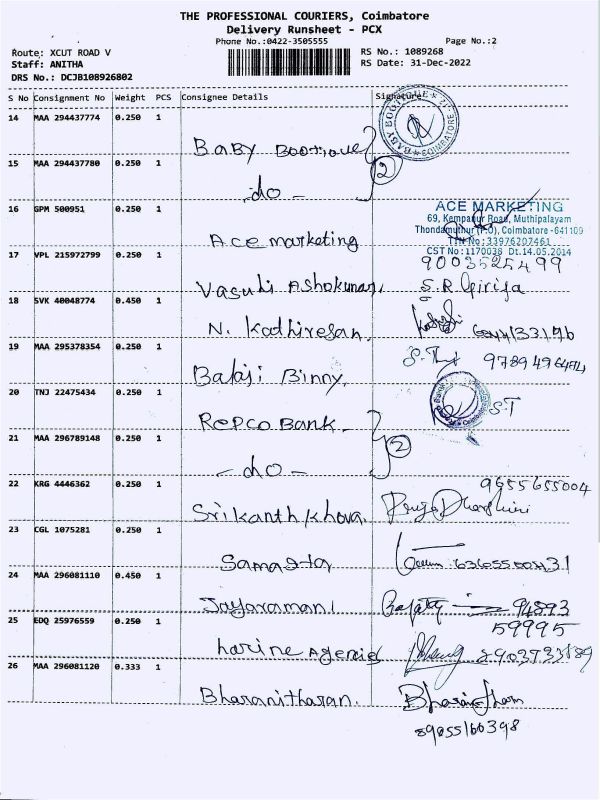 THE PROFESSIONAL COURIERS, Coimbatore
Delivery Runsheet - PCX
Phone No.:0422-3505555 Page No.:2
Route: XCUT ROAD V RS No.: 1089268
Staff: ANITHA RS Date: 31-Dec-2022
DRS No.: DCJB108926802
S No Consignment No Weight PCS Consignee Details Signature
14 MAA 294437774 0.250 1
BABY Bootique
15 MAA 294437780 0.250 1
-do- 2
16 GPM 500951 0.250 1
ACE MARKETING
69, Kempanur Road, Muthipalayam
Thondamuthur (P.O), Coimbatore -641109
TIN No :33976207461
CST No :1170038 Dt.14.05.2014
Ace marketing
17 VPL 215972799 0.250 1 9003525499
Vasuki Ashokumar, S.R.Girija
18 SVK 40048774 0.450 1
N. Kathiresan.
19 MAA 295378354 0.250 1
Balaji Binny,
20 TNJ 22475434 0.250 1 S.T
Repco BANK
21 MAA 296789148 0.250 1
-do- 2
22 KRG 4446362 0.250 1 9655655004
Srikanth Khova, Priya Dharshini
23 CGL 1075281 0.250 1
Samasta
24 MAA 296081110 0.450 1
Jayaraman, 94893
25 EDQ 25976559 0.250 1 59995
harine Agencies
26 MAA 296081120 0.333 1
Bharanitharan.